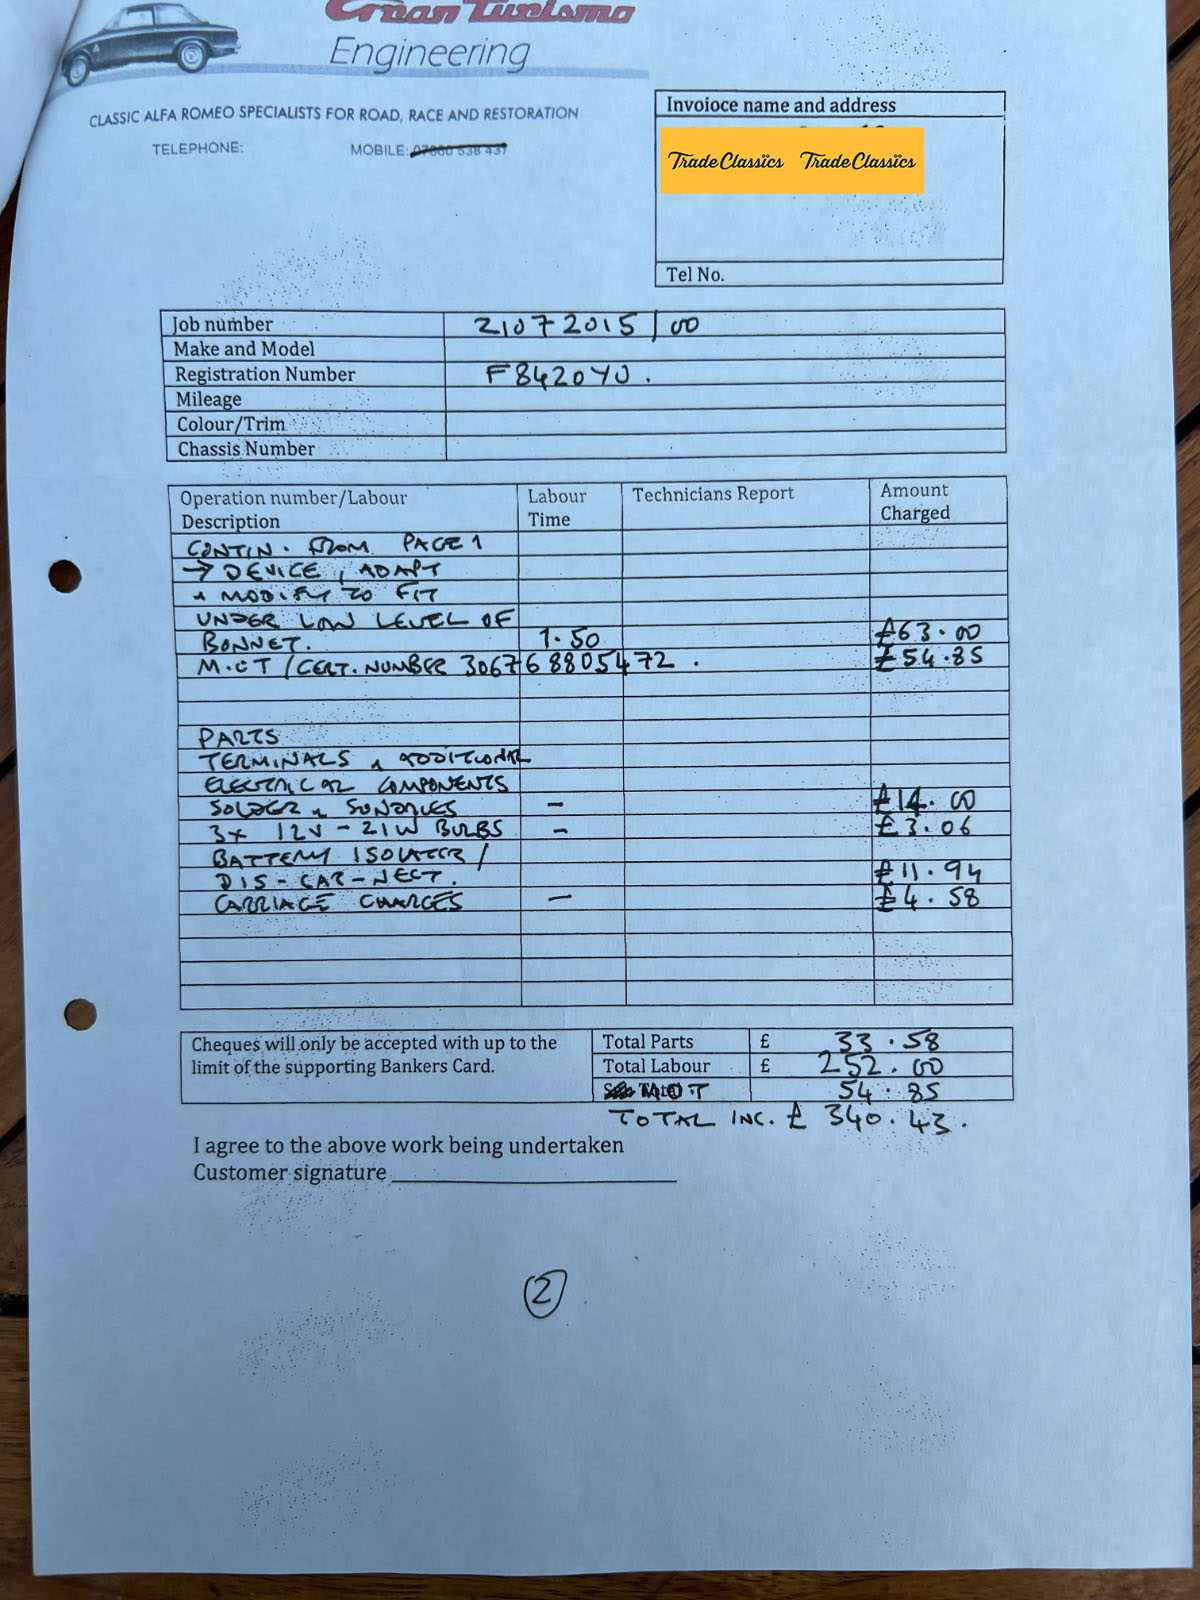 Gran Turismo
Engineering
CLASSIC ALFA ROMEO SPECIALISTS FOR ROAD, RACE AND RESTORATION
TELEPHONE: MOBILE: 07860 538 437
Invoioce name and address
TradeClassics TradeClassics
Tel No.
Job number 21072015/00
Make and Model
Registration Number F842OYU.
Mileage
Colour/Trim
Chassis Number
Operation number/Labour Description Labour Time Technicians Report Amount Charged
CONTIN. FROM PAGE 1
→ DEVICE, ADAPT
& MODIFY TO FIT
UNDER LOW LEVEL OF
BONNET. 1.50 £63.00
M.O.T / CERT. NUMBER 306768805472. £54.85
PARTS
TERMINALS & ADDITIONAL
ELECTRICAL COMPONENTS
SOLDER & SUNDRIES – £14.00
3x 12V - 21W BULBS – £3.06
BATTERY ISOLATER /
DIS-CAR-NECT. £11.94
CARRIAGE CHARGES – £4.58
Cheques will only be accepted with up to the
limit of the supporting Bankers Card.
Total Parts £ 33.58
Total Labour £ 252.00
MOT 54.85
TOTAL INC. £ 340.43.
I agree to the above work being undertaken
Customer signature
2